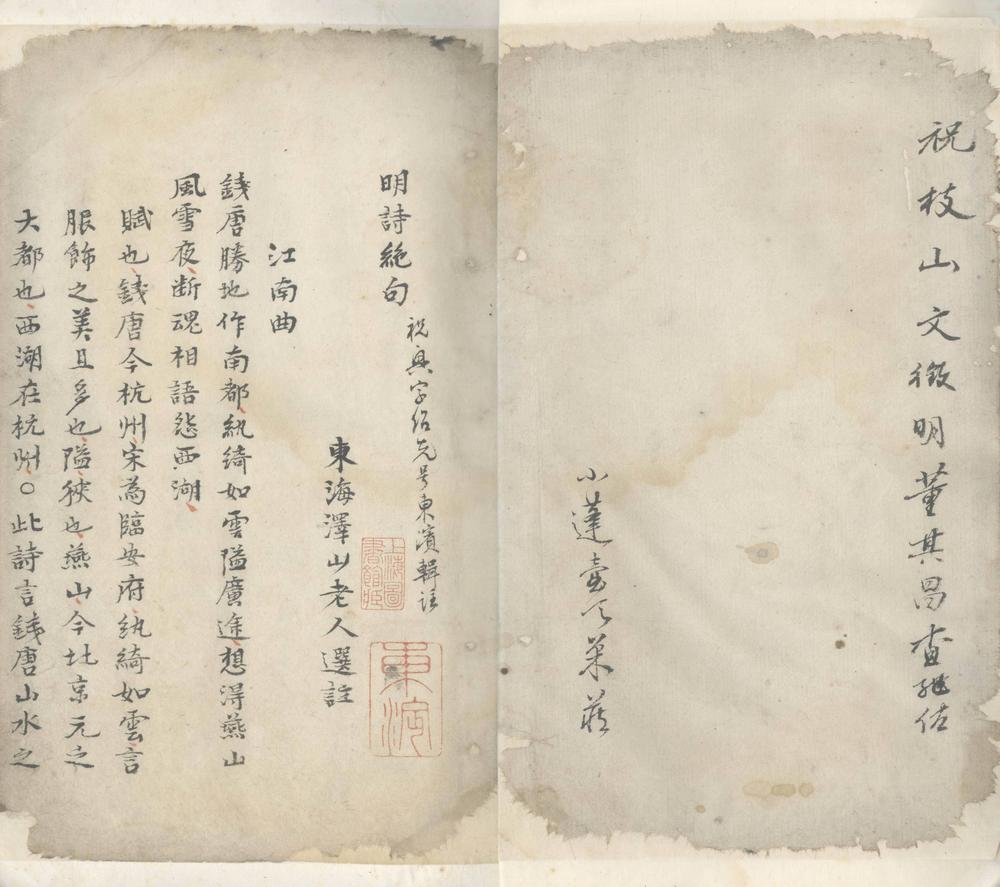 祝枝山文徵明董其昌查継佐
小蓬壺
明詩絶句
祝字绍先号東濱輯註
東海澤山老人選註
上海圖書館藏
東海
江南曲
錢唐勝地作南都紈綺如雲隘廣途想得燕山
風雪夜断魂相語怨西湖
賦也錢唐今杭州宋為臨安府紈綺如雲言
服飾之美且多也隘狹也燕山今北京元之
大都也西湖在杭州○此詩言錢唐山水之